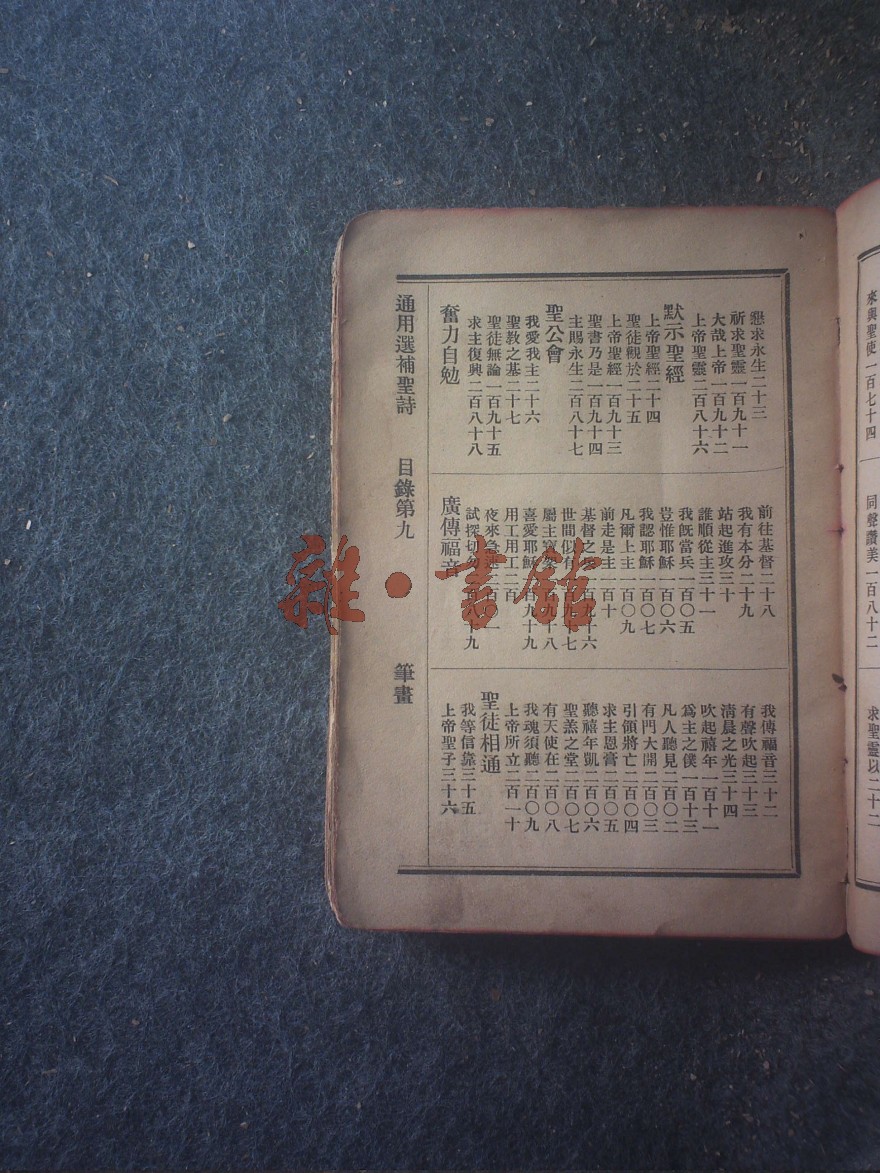 來與聖使一百七十四
同聲讚美一百八十二
求聖靈以二十二
懇求永生二十三
祈求聖靈一百九十一
大哉上帝一百九十二
上帝聖靈二百八十六
默示聖經
上帝聖經二十四
聖徒觀於二十五
上帝聖經一百九十三
聖書乃是一百九十四
主賜永生二百八十七
聖公會
我愛我主二十六
聖教之基二十七
聖徒無論一百九十五
求主復興二百八十八
奮力自勉
前往基督二十八
我有本分二十九
站起進攻三十
誰順從主三十一
我既當兵一百〇五
豈惟耶穌一百〇六
我認耶穌一百〇七
凡爾上主一百〇九
前走是主一百十
基督之 百九十六
世間似有 百九十七
屬主 百九十八
喜愛耶穌 百九十九
用工用工二百
夜來 二百〇一
試探切勿二百八十九
廣傳福音
我傳福音三十二
有聲吹起三十三
清晨之光三十四
吹起禧年一百十一
爲主之僕一百十三
凡人聽見二百〇二
有門大開二百〇三
引領將亡二百〇四
求主恩膏二百〇五
聽禧年凱二百〇六
聖羔之堂二百〇七
有天使在二百〇八
我魂須聽二百〇九
上帝所立二百一十
聖徒相通
我等信靠三十五
上帝聖子三十六
通用選補聖詩 目錄第九 筆畫
雜·書館